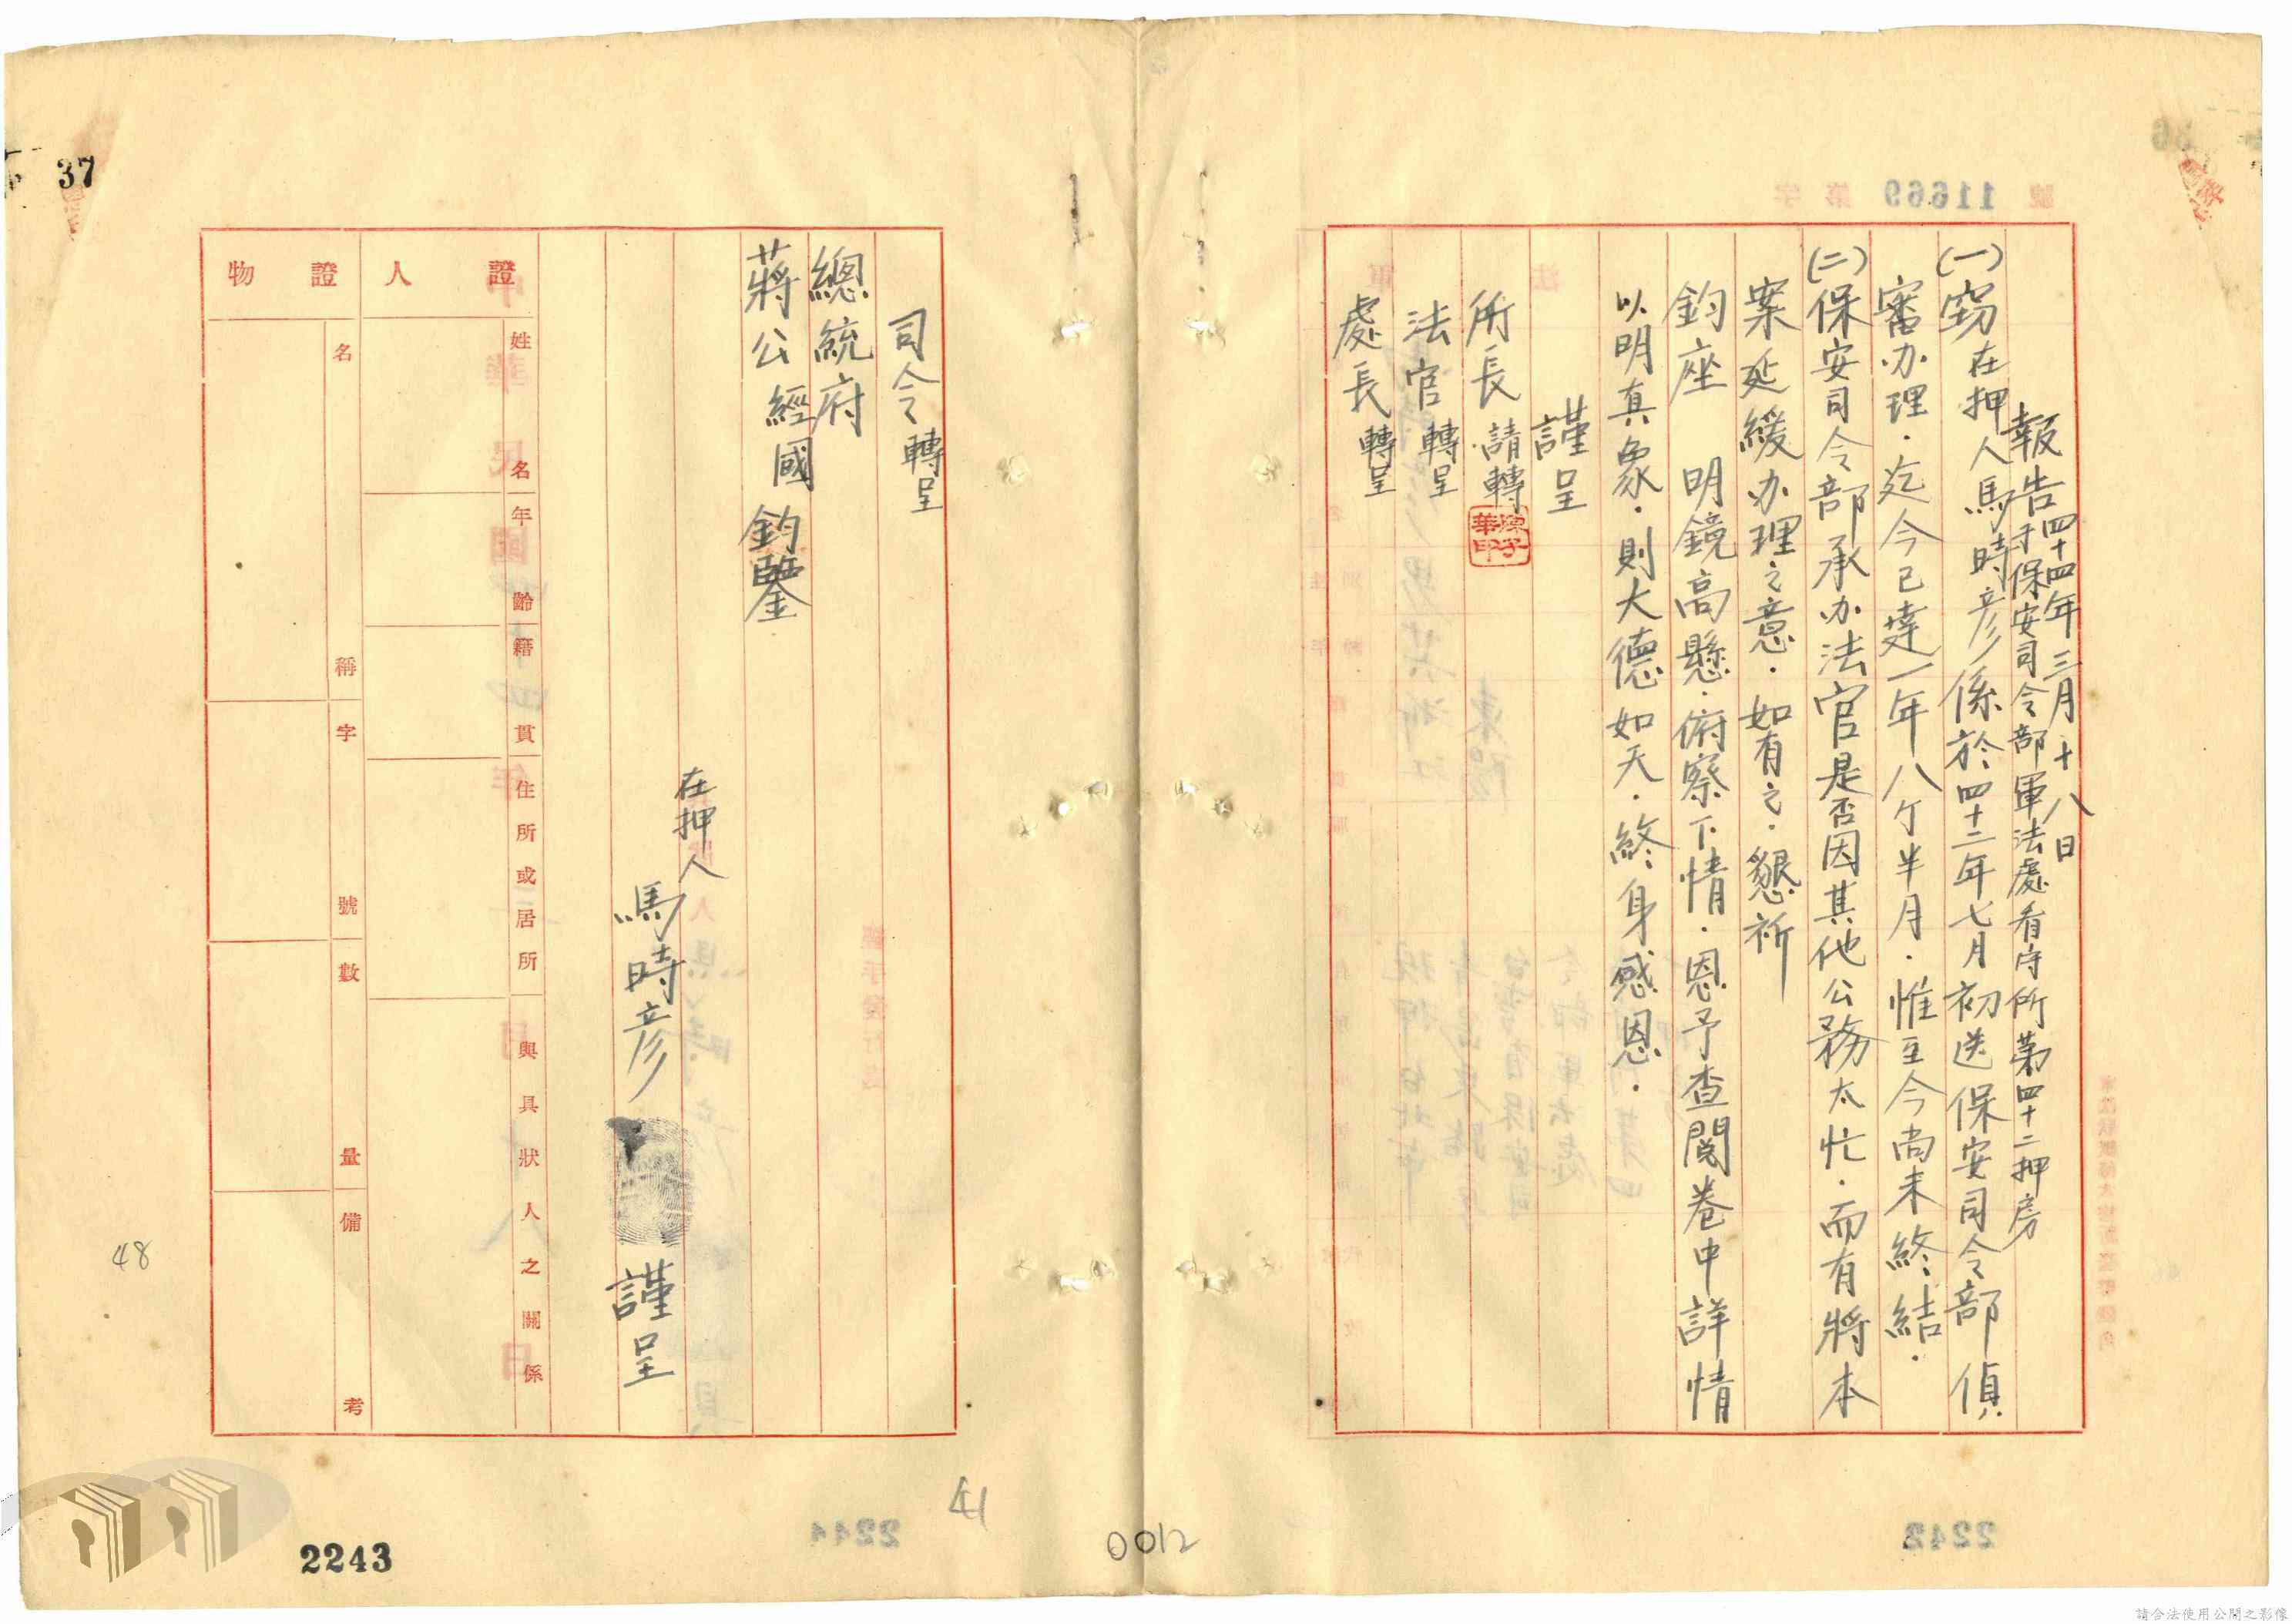 報告 四十四年三月十八日
于保安司令部軍法處看守所第四十二押房
(一)窃在押人馬時彥係於四十二年七月初送保安司令部偵
審办理．迄今已達一年八个半月．惟至今尚未終結．
(二)保安司令部承办法官是否因其他公務太忙．而有將本
案延緩办理之意．如有之．懇祈
鈞座 明鏡高懸．俯察下情．恩予查閱卷中詳情
以明真象．則大德如天．終身感恩．
謹呈
所長請轉
法官轉呈
處長轉呈
司令轉呈
總統府
蔣公經國 鈞鑒
在押人
馬時彥 謹呈
證人
姓名
年齡
籍貫
住所或居所
與具狀人之關係
證物
名稱
字號
數量
備考
37
48
41
0012
2243
請合法使用公開之影像